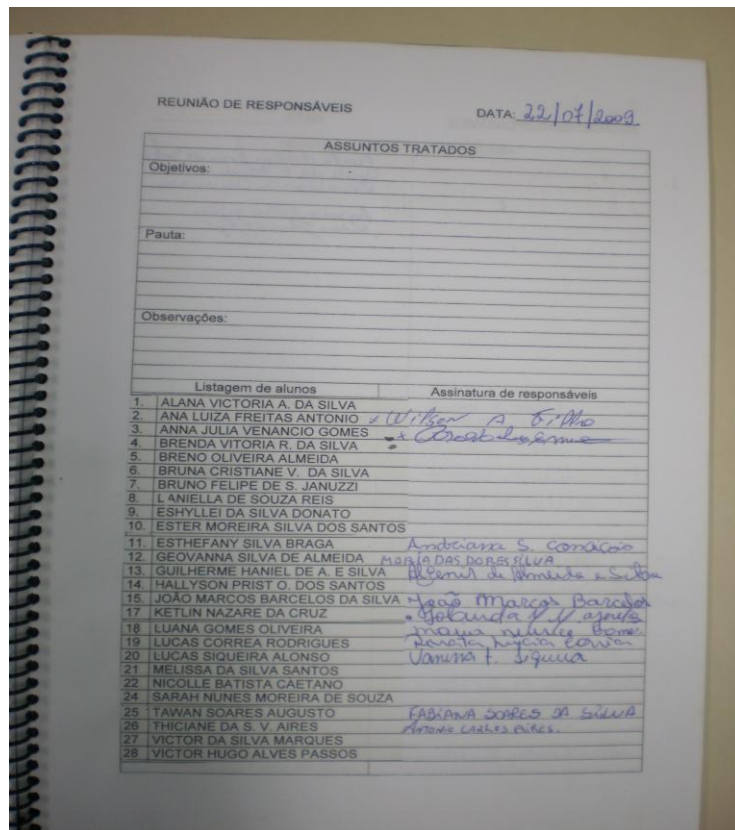 REUNIÃO DE RESPONSÁVEIS DATA: 22/07/2009
ASSUNTOS TRATADOS
Objetivos:
Pauta:
Observações:
Listagem de alunos Assinatura de responsáveis
1. ALANA VICTORIA A. DA SILVA
2. ANA LUIZA FREITAS ANTONIO x Wilson A Filho
3. ANNA JULIA VENANCIO GOMES
4. BRENDA VITORIA R. DA SILVA
5. BRENO OLIVEIRA ALMEIDA
6. BRUNA CRISTIANE V. DA SILVA
7. BRUNO FELIPE DE S. JANUZZI
8. LANIELLA DE SOUZA REIS
9. ESHYLLEI DA SILVA DONATO
10. ESTER MOREIRA SILVA DOS SANTOS
11. ESTHEFANY SILVA BRAGA Andreiana S. Conceição
12. GEOVANNA SILVA DE ALMEIDA MARIA DAS DORES SILVA
13. GUILHERME HANIEL DE A. E SILVA de Almeida e Silva
14. HALLYSON PRIST O. DOS SANTOS
15. JOÃO MARCOS BARCELOS DA SILVA João Marcos Barcelos
17 KETLIN NAZARE DA CRUZ
18 LUANA GOMES OLIVEIRA
19 LUCAS CORREA RODRIGUES
20 LUCAS SIQUEIRA ALONSO Vanessa F. Siqueira
21 MELISSA DA SILVA SANTOS
22 NICOLLE BATISTA CAETANO
24 SARAH NUNES MOREIRA DE SOUZA
25 TAWAN SOARES AUGUSTO FABIANA SOARES DA SILVA
26 THICIANE DA S. V. AIRES ANTONIO CARLOS AIRES.
27 VICTOR DA SILVA MARQUES
28 VICTOR HUGO ALVES PASSOS